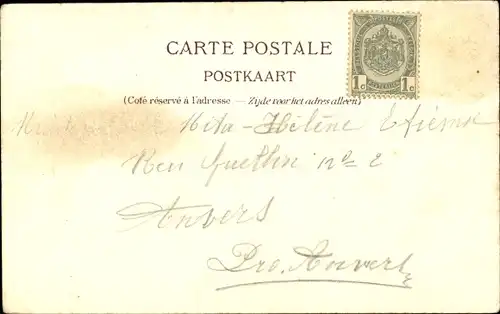 CARTE POSTALE
POSTKAART
(Coté réservé à l'adresse — Zijde voor het adres alleen)
1c 1c
Hélène Etienne
Rue n° 2
Anvers
Pro. Anvers